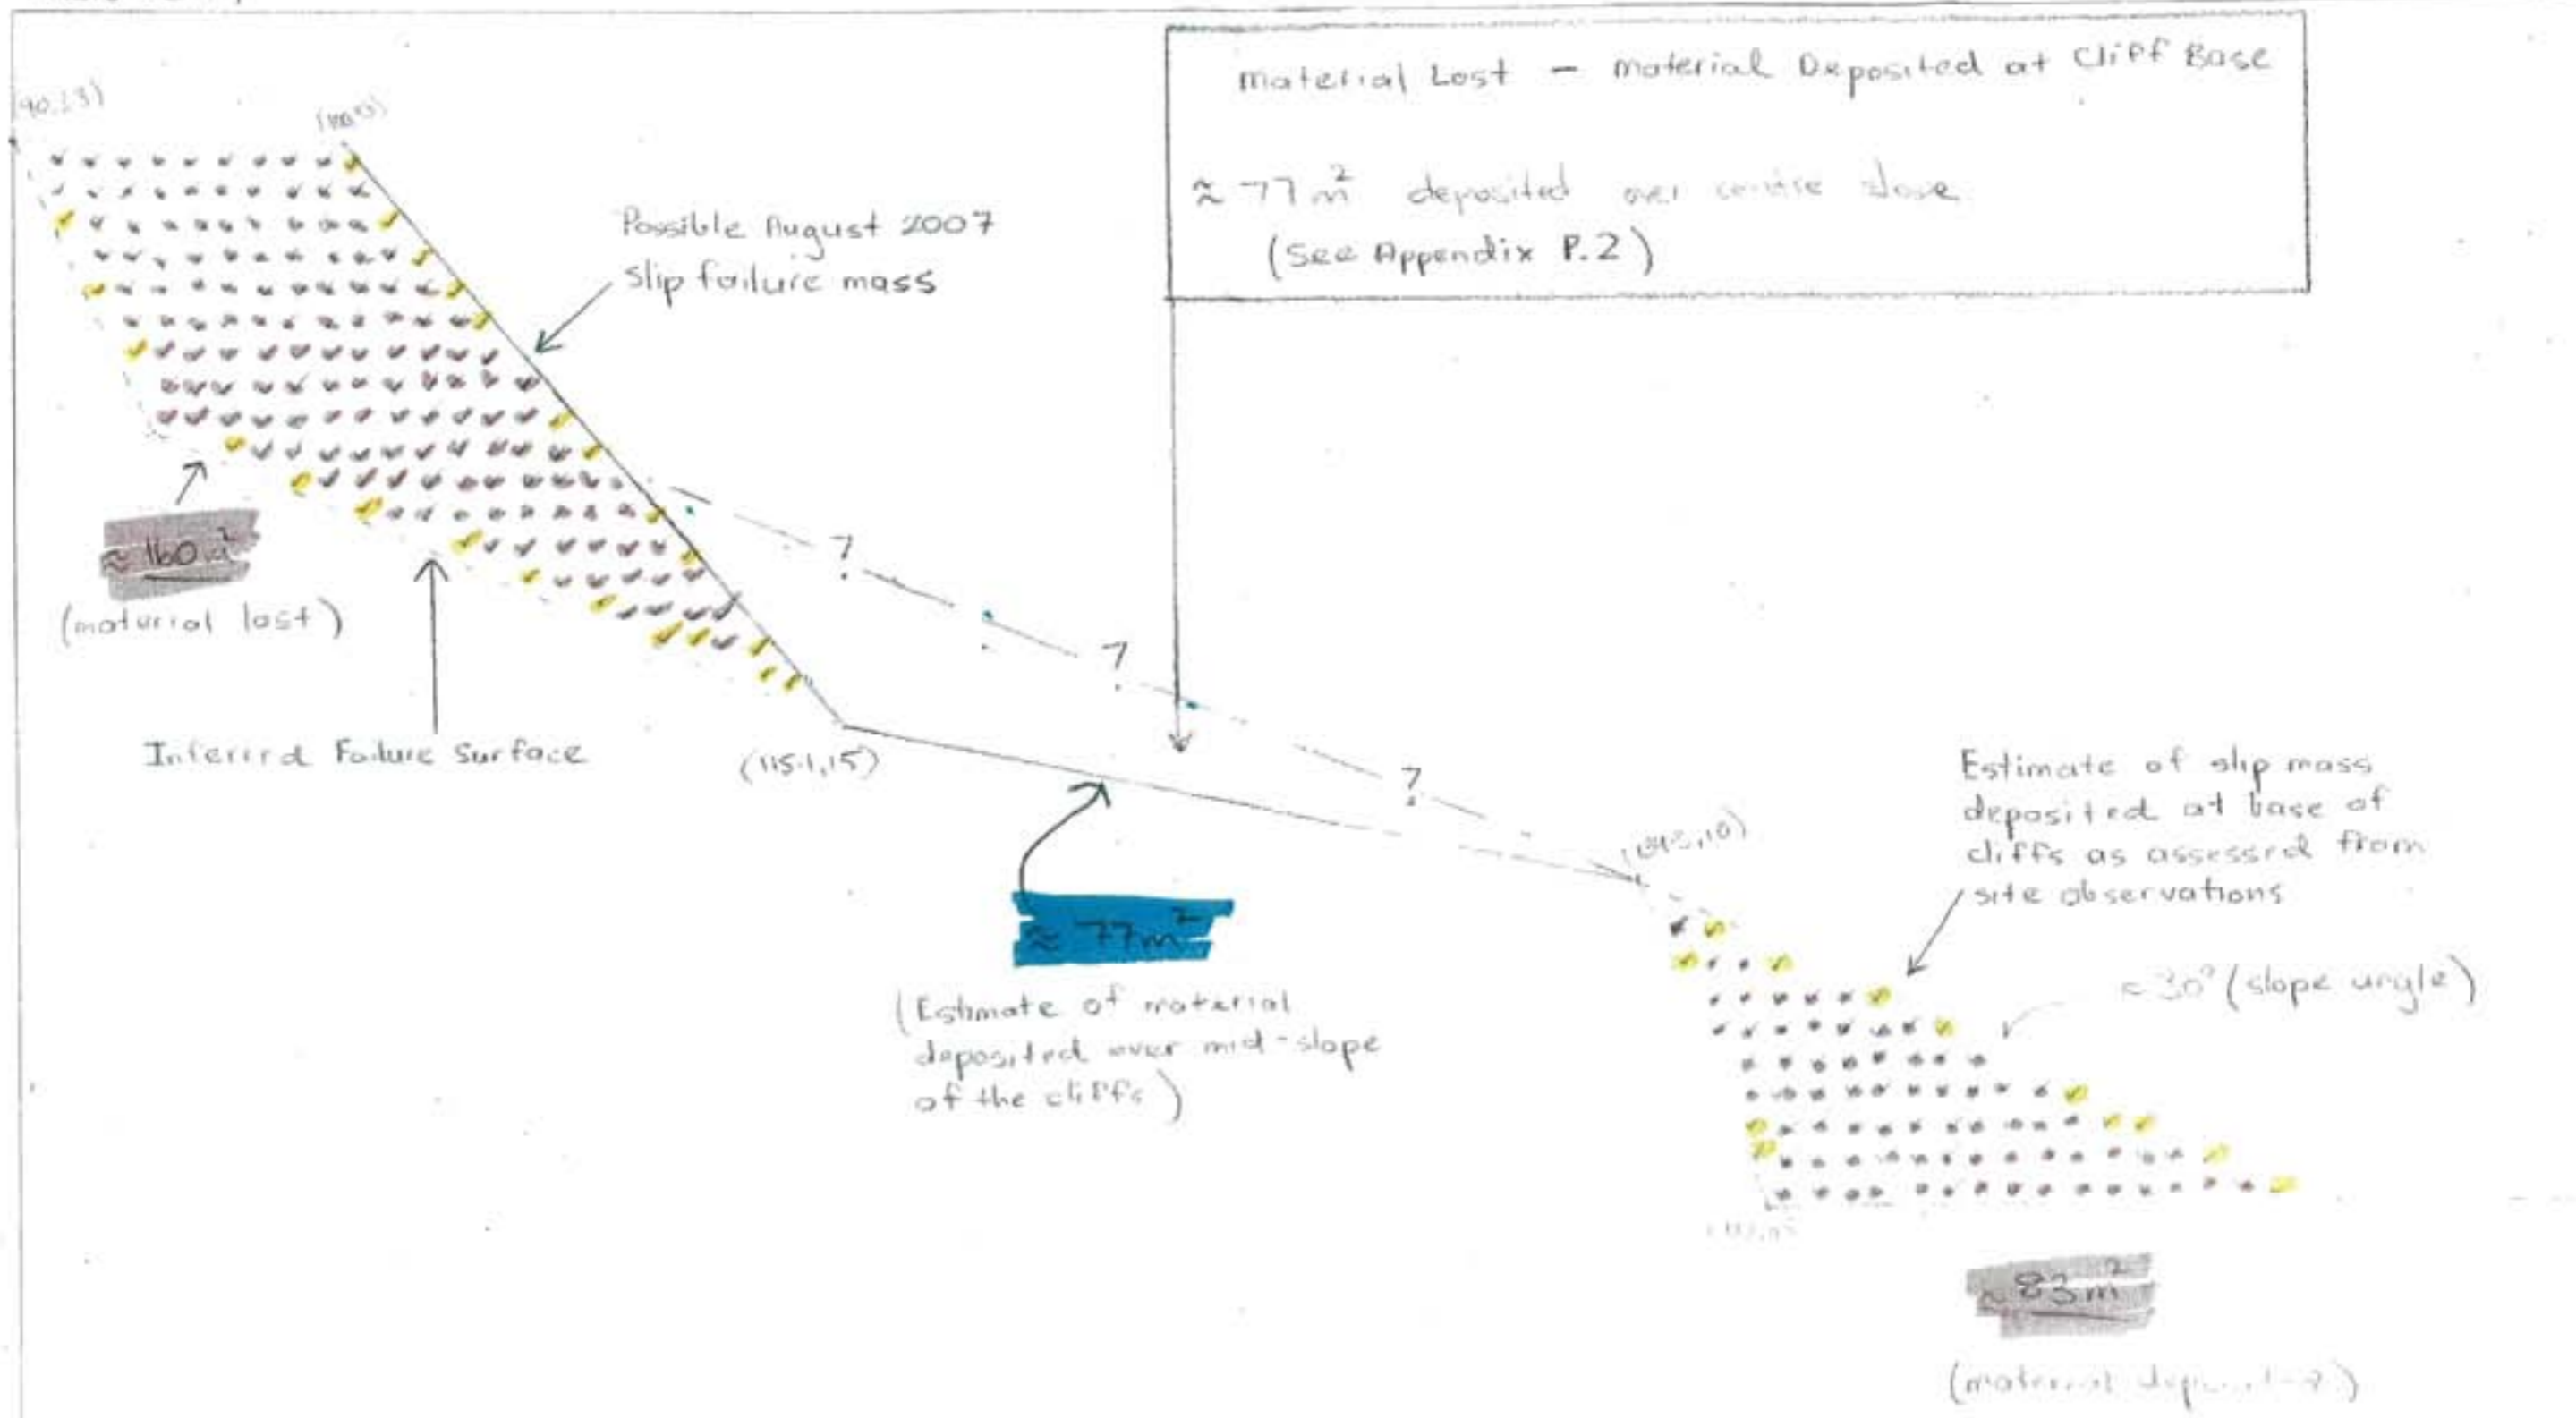 Material Lost - Material Deposited at Cliff Base
≈ 77 m² deposited over centre slope
(See Appendix P.2)
Possible August 2007
slip failure mass
≈ 160 m²
(material lost)
?
?
?
Inferred Failure Surface
(115.1, 15)
≈ 77m²
(Estimate of material
deposited over mid-slope
of the cliffs)
Estimate of slip mass
deposited at base of
cliffs as assessed from
site observations
30° (slope angle)
≈ 83m²
(material